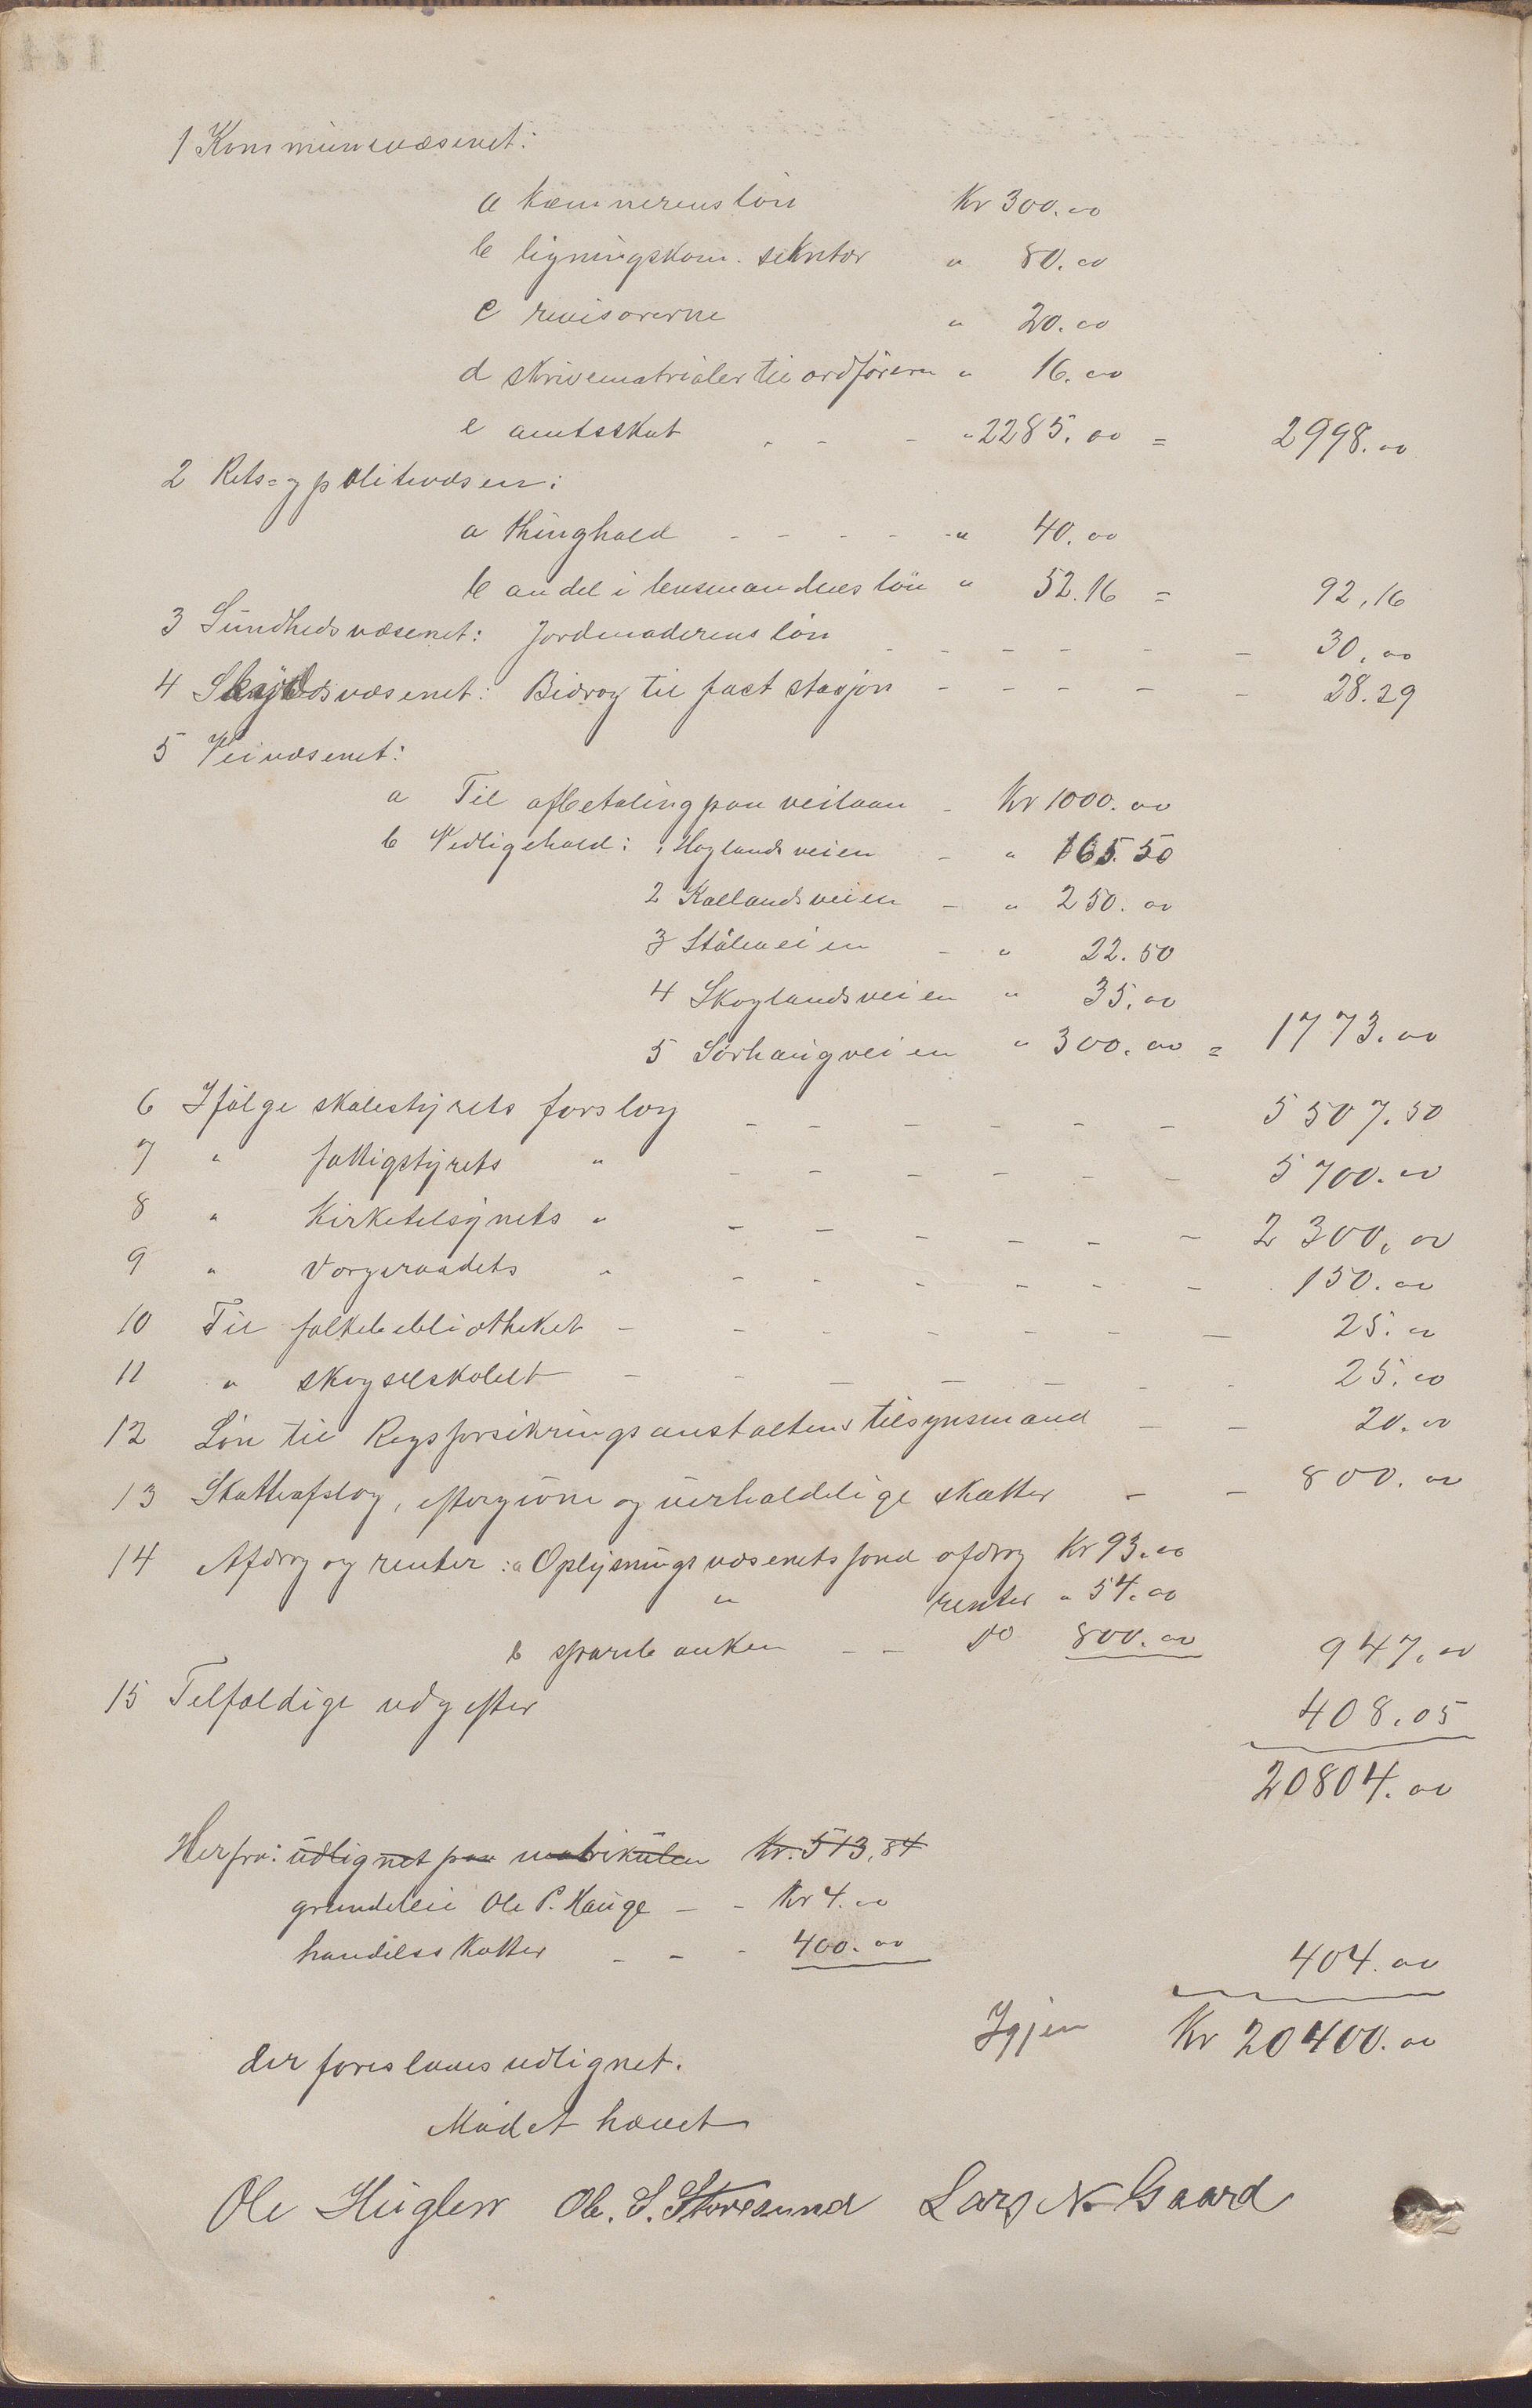 1 Kommunevæsenet:
a kæmnerens løn Kr 300.00
b ligningskom. sekretær " 80.00
c revisorerne " 20.00
d skrivematrialer til ordføreren " 16.00
e amtsskat - - - " 2285.00 = 2998.00
2 Rets- og politivæsen:
a thinghold - - - - - " 40.00
b andel i lensmandens løn " 52.16 = 92,16
3 Sundhedsvæsenet: Jordmoderens løn - - - - - - 30.00
4 Skydsvæsenet: Bidrag til fast stasjon - - - - - 28.29
5 Veivæsenet:
a Til afbetaling paa veilaan - Kr 1000.00
b Vedligehold: 1 Haglandsveien - " 165.50
2 Kallandsveien - " 250.00
3 Ståleveien - " 22.50
4 Skoglandsveien " 35.00
5 Sørhaugveien " 300.00 = 1773.00
6 Ifølge skolestyrets forslag - - - - - - 5507.50
7 " fattigstyrets " - - - - - - 5700.00
8 " kirketilsynets " - - - - - - 2300,00
9 " Værgeraadets " - - - - - - 150.00
10 Til folkebibliotheket - - - - - - - 25.00
11 " skogselskabet - - - - - - - 25.00
12 Løn til Rigsforsikringsanstaltens tilsynsmand - - 20.00
13 Skatteafslag, eftergivne og uerholdelige skatter - - 800.00
14 Afdrag og renter: a Oplysningsvæsenets fond afdrag Kr 93.00
" renter " 54.00
b sparebanken - - do 800.00 947.00
15 Tilfældige udgifter 408.05
20804.00
Herfra: udlignet paa matrikulen Kr. 513,84
grundleie Ole P. Hauge - - Kr 4.00
handelsskatter - - - 400.00 404.00
Igjen Kr 20400.00
der foreslaaes udlignet.
Mødet hævet
Ole Huglen Ol. S. Storesund Lars N. Gaard